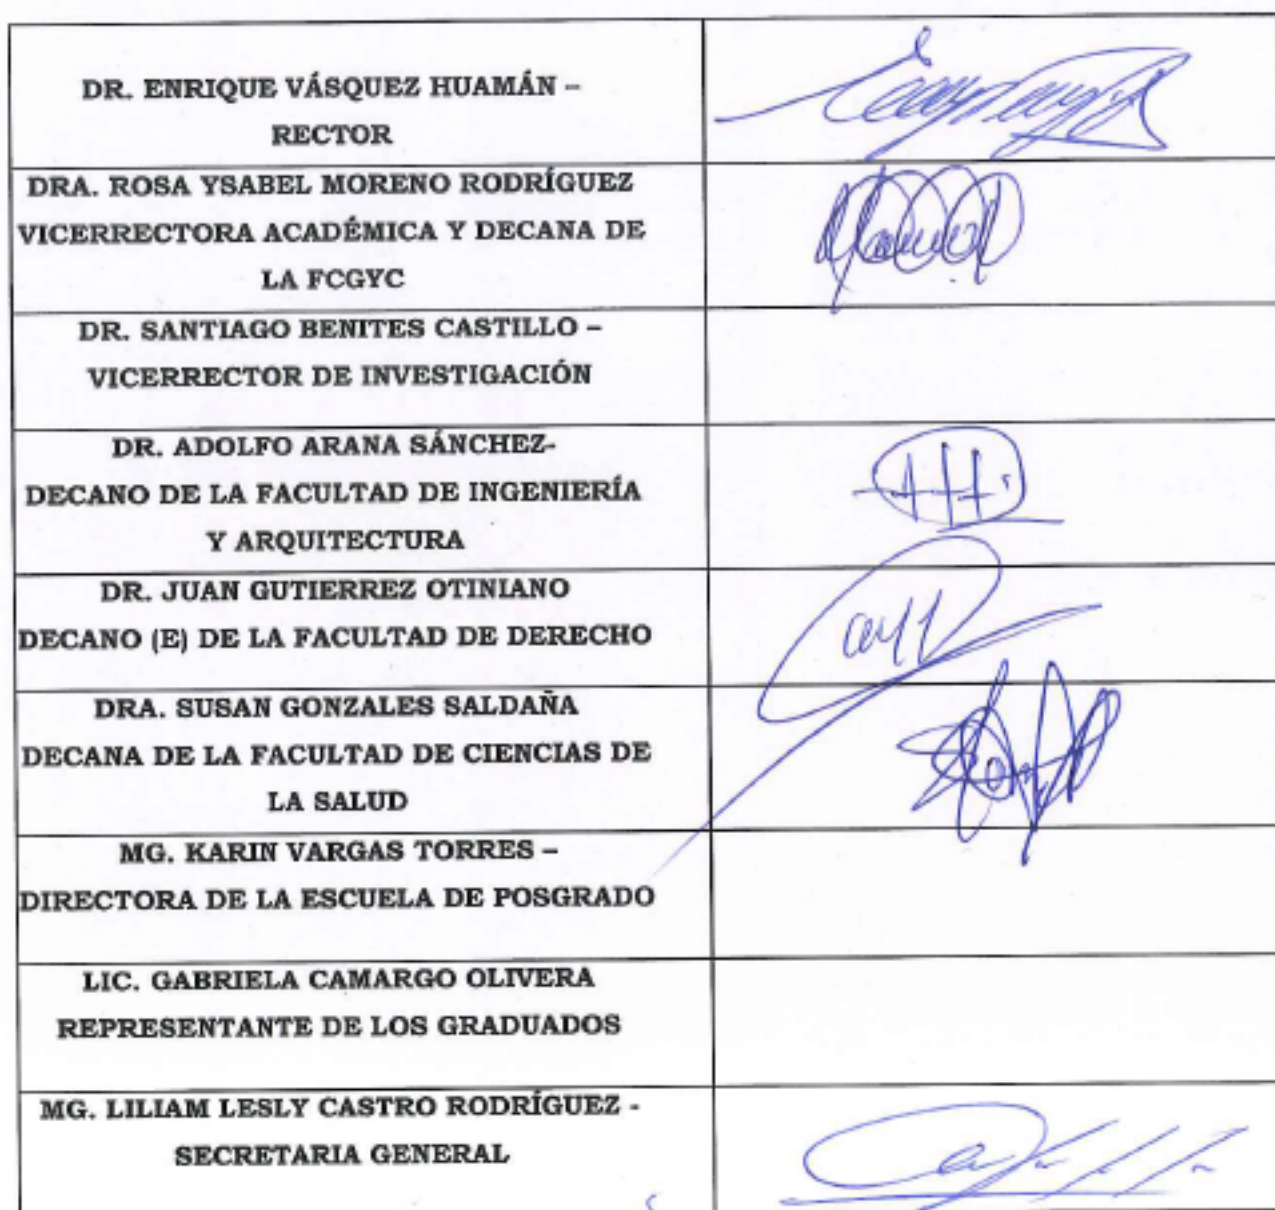 DR. ENRIQUE VÁSQUEZ HUAMÁN –
RECTOR
DRA. ROSA YSABEL MORENO RODRÍGUEZ
VICERRECTORA ACADÉMICA Y DECANA DE
LA FCGYC
DR. SANTIAGO BENITES CASTILLO –
VICERRECTOR DE INVESTIGACIÓN
DR. ADOLFO ARANA SÁNCHEZ-
DECANO DE LA FACULTAD DE INGENIERÍA
Y ARQUITECTURA
DR. JUAN GUTIERREZ OTINIANO
DECANO (E) DE LA FACULTAD DE DERECHO
DRA. SUSAN GONZALES SALDAÑA
DECANA DE LA FACULTAD DE CIENCIAS DE
LA SALUD
MG. KARIN VARGAS TORRES –
DIRECTORA DE LA ESCUELA DE POSGRADO
LIC. GABRIELA CAMARGO OLIVERA
REPRESENTANTE DE LOS GRADUADOS
MG. LILIAM LESLY CASTRO RODRÍGUEZ -
SECRETARIA GENERAL